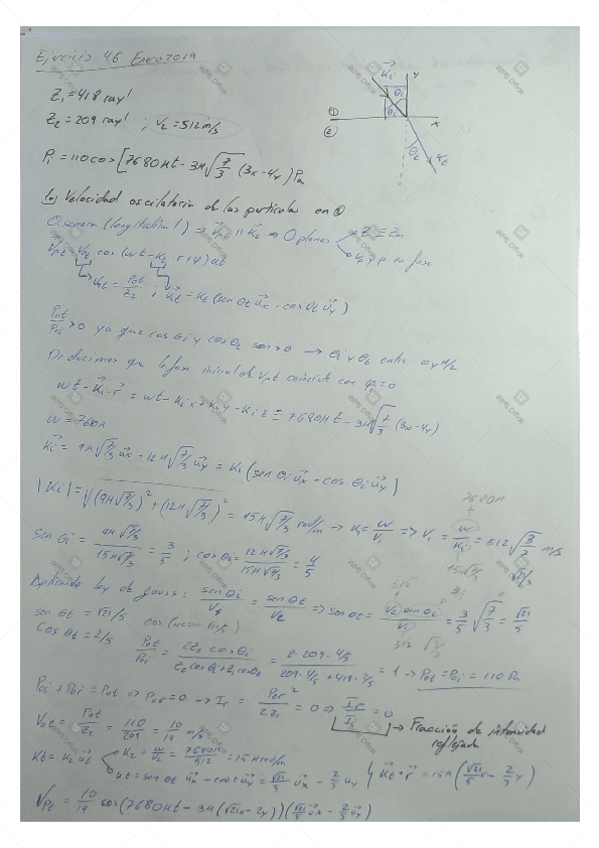 Ejercicio 46 Enero 2019
Z₁ = 418 rayl
Z₂ = 209 rayl ; v₂ = 512 m/s
Pᵢ = 110 cos [7680πt - 3π√(7/3) (3x - 4y)] Pa
Ki y θi θi x ① ② θt Kt
Velocidad oscilatoria de las partículas en ②
O. sonora (longitudinal) ⇒ ∥ Kt ⇒ O. planas
vp y p en fase
cos (wt - Kt · r + φ) ut
Pot/Z₂ ; Kt = Kt (sen θt ux - cos θt uy)
Pot/Poi > 0 ya que cos θi y cos θt son > 0 → θi y θt entre 0 y π/2
Deducimos que la fase inicial de Vpt coincide con φi = 0
wt - Ki · r = 7680πt - 3π√(7/3) (3x - 4y)
w = 7680π
Ki = 9π√(7/3) ux - 12π√(7/3) uy = Ki (sen θi ux - cos θi uy)
7680π
|Ki| = √((9π√(7/3))² + (12π√(7/3))²) = 15π√(7/3) rad/m → Ki = w/V₁ ⇒ V₁ = w/Ki = 512 √(3/7) m/s
sen θi = 9π√(7/3) / 15π√(7/3) = 3/5 ; cos θi = 12π√(7/3) / 15π√(7/3) = 4/5
Aplicando ley de : sen θi / V₁ = sen θt / V₂ ⇒ sen θt = V₂ sen θi / V₁ = 3/5 √(7/3) = √21/5
sen θt = √21/5
cos θt = 2/5
Pot/Poi = 2Z₂ cos θi / (Z₂ cos θi + Z₁ cos θt) = 2 · 209 · 4/5 / (209 · 4/5 + 418 · 2/5) = 1 → Pot = Poi = 110 Pa
Poi + Por = Pot ⇒ Por = 0 → Ir = Por²/2Z₁ = 0 ⇒ Ir/Ii = 0
→ Fracción de intensidad reflejada
Vot = Pot/Z₂ = 110/209 = 10/19 m/s
Kt = K₂ ut
K₂ = w/V₂ = 7680π/512 = 15π rad/m
ut = sen θt ux - cos θt uy = √21/5 ux - 2/5 uy
Kt · r = 15π (√21/5 x - 2/5 y)
Vpt = 10/19 cos (7680πt - 3π (√21x - 2y)) (√21/5 ux - 2/5 uy)
WPS Office